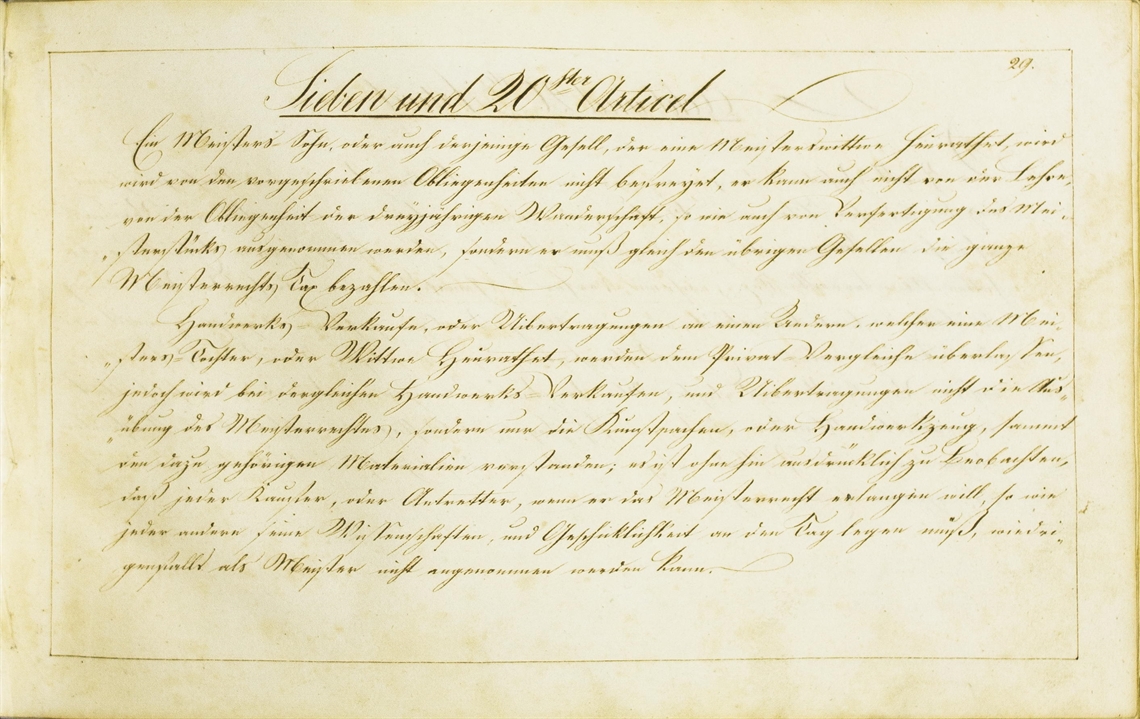 29.
Sieben und 20ster Articel
Ein Meisters Sohn, oder auch derjenige Gesell, der eine Meisterswittwe heurathet, wird
wird von den vorgeschriebenen Obliegenheiten nicht befreyet, er kann auch nicht von der Lehre,
von der Obliegenheit der dreyjährigen Wanderschaft, so wie auch von Verfertigung des Mei-
„sterstücks ausgenommen werden, sondern er muß gleich den übrigen Gesellen die ganze
Meisterrechts Tax bezahlen.
Handwerks-Verkaufe, oder Uibertragungen an einen Andern, welcher eine Mei-
„sters-Tochter, oder Wittwe heurathet, werden dem Privat-Vergleiche überlassen,
jedoch wird bei dergleichen Handwerks-Verkaufen, und Uibertragungen nicht die Aus„
„übung des Meisterrechtes, sondern nur die Kunstsachen, oder Handwerkzeug, sammt
den dazu gehörigen Materialien verstanden; es ist ohnehin ausdrücklich zu beobachten,
daß jeder Kaufer, oder Antretter, wenn er das Meisterrecht erlangen will, so wie
jeder andere seine Wissenschaften, und Geschicklichkeit an den Tag legen muß, wiedri„
genfalls als Meister nicht angenommen werden kann.